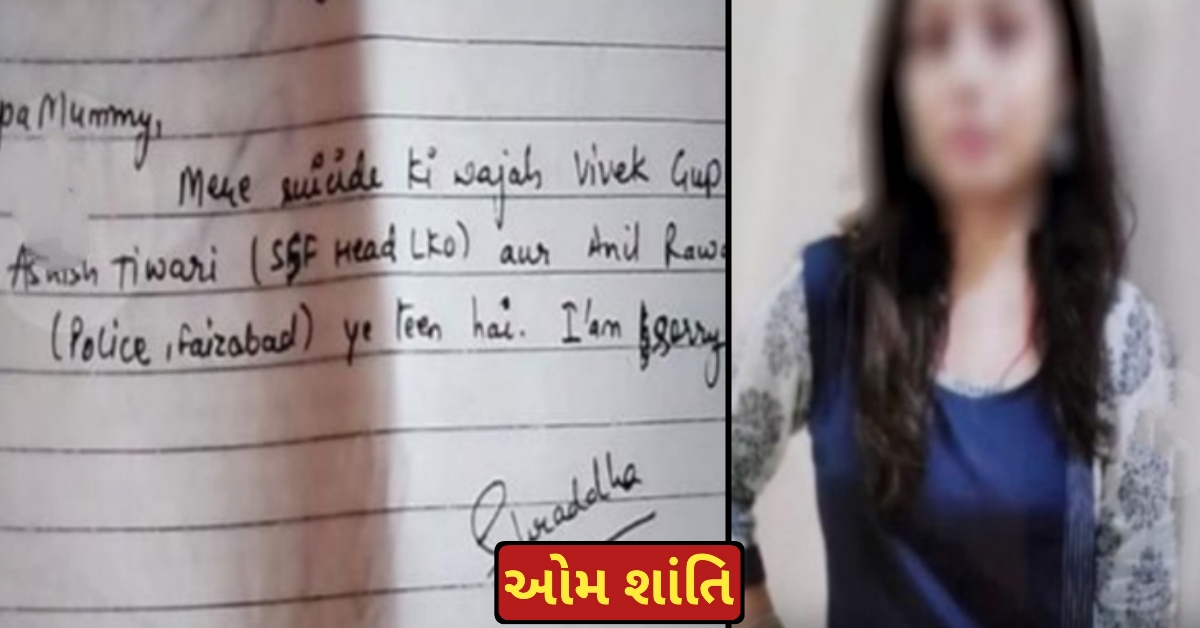 pa Mummy,
Mere suicide ki wajah Vivek Gup
Ashish Tiwari (SSF Head LKO) aur Anil Rawa
(Police, Faizabad) ye teen hai. I'am sorry
Shraddha
ઓમ શાંતિ